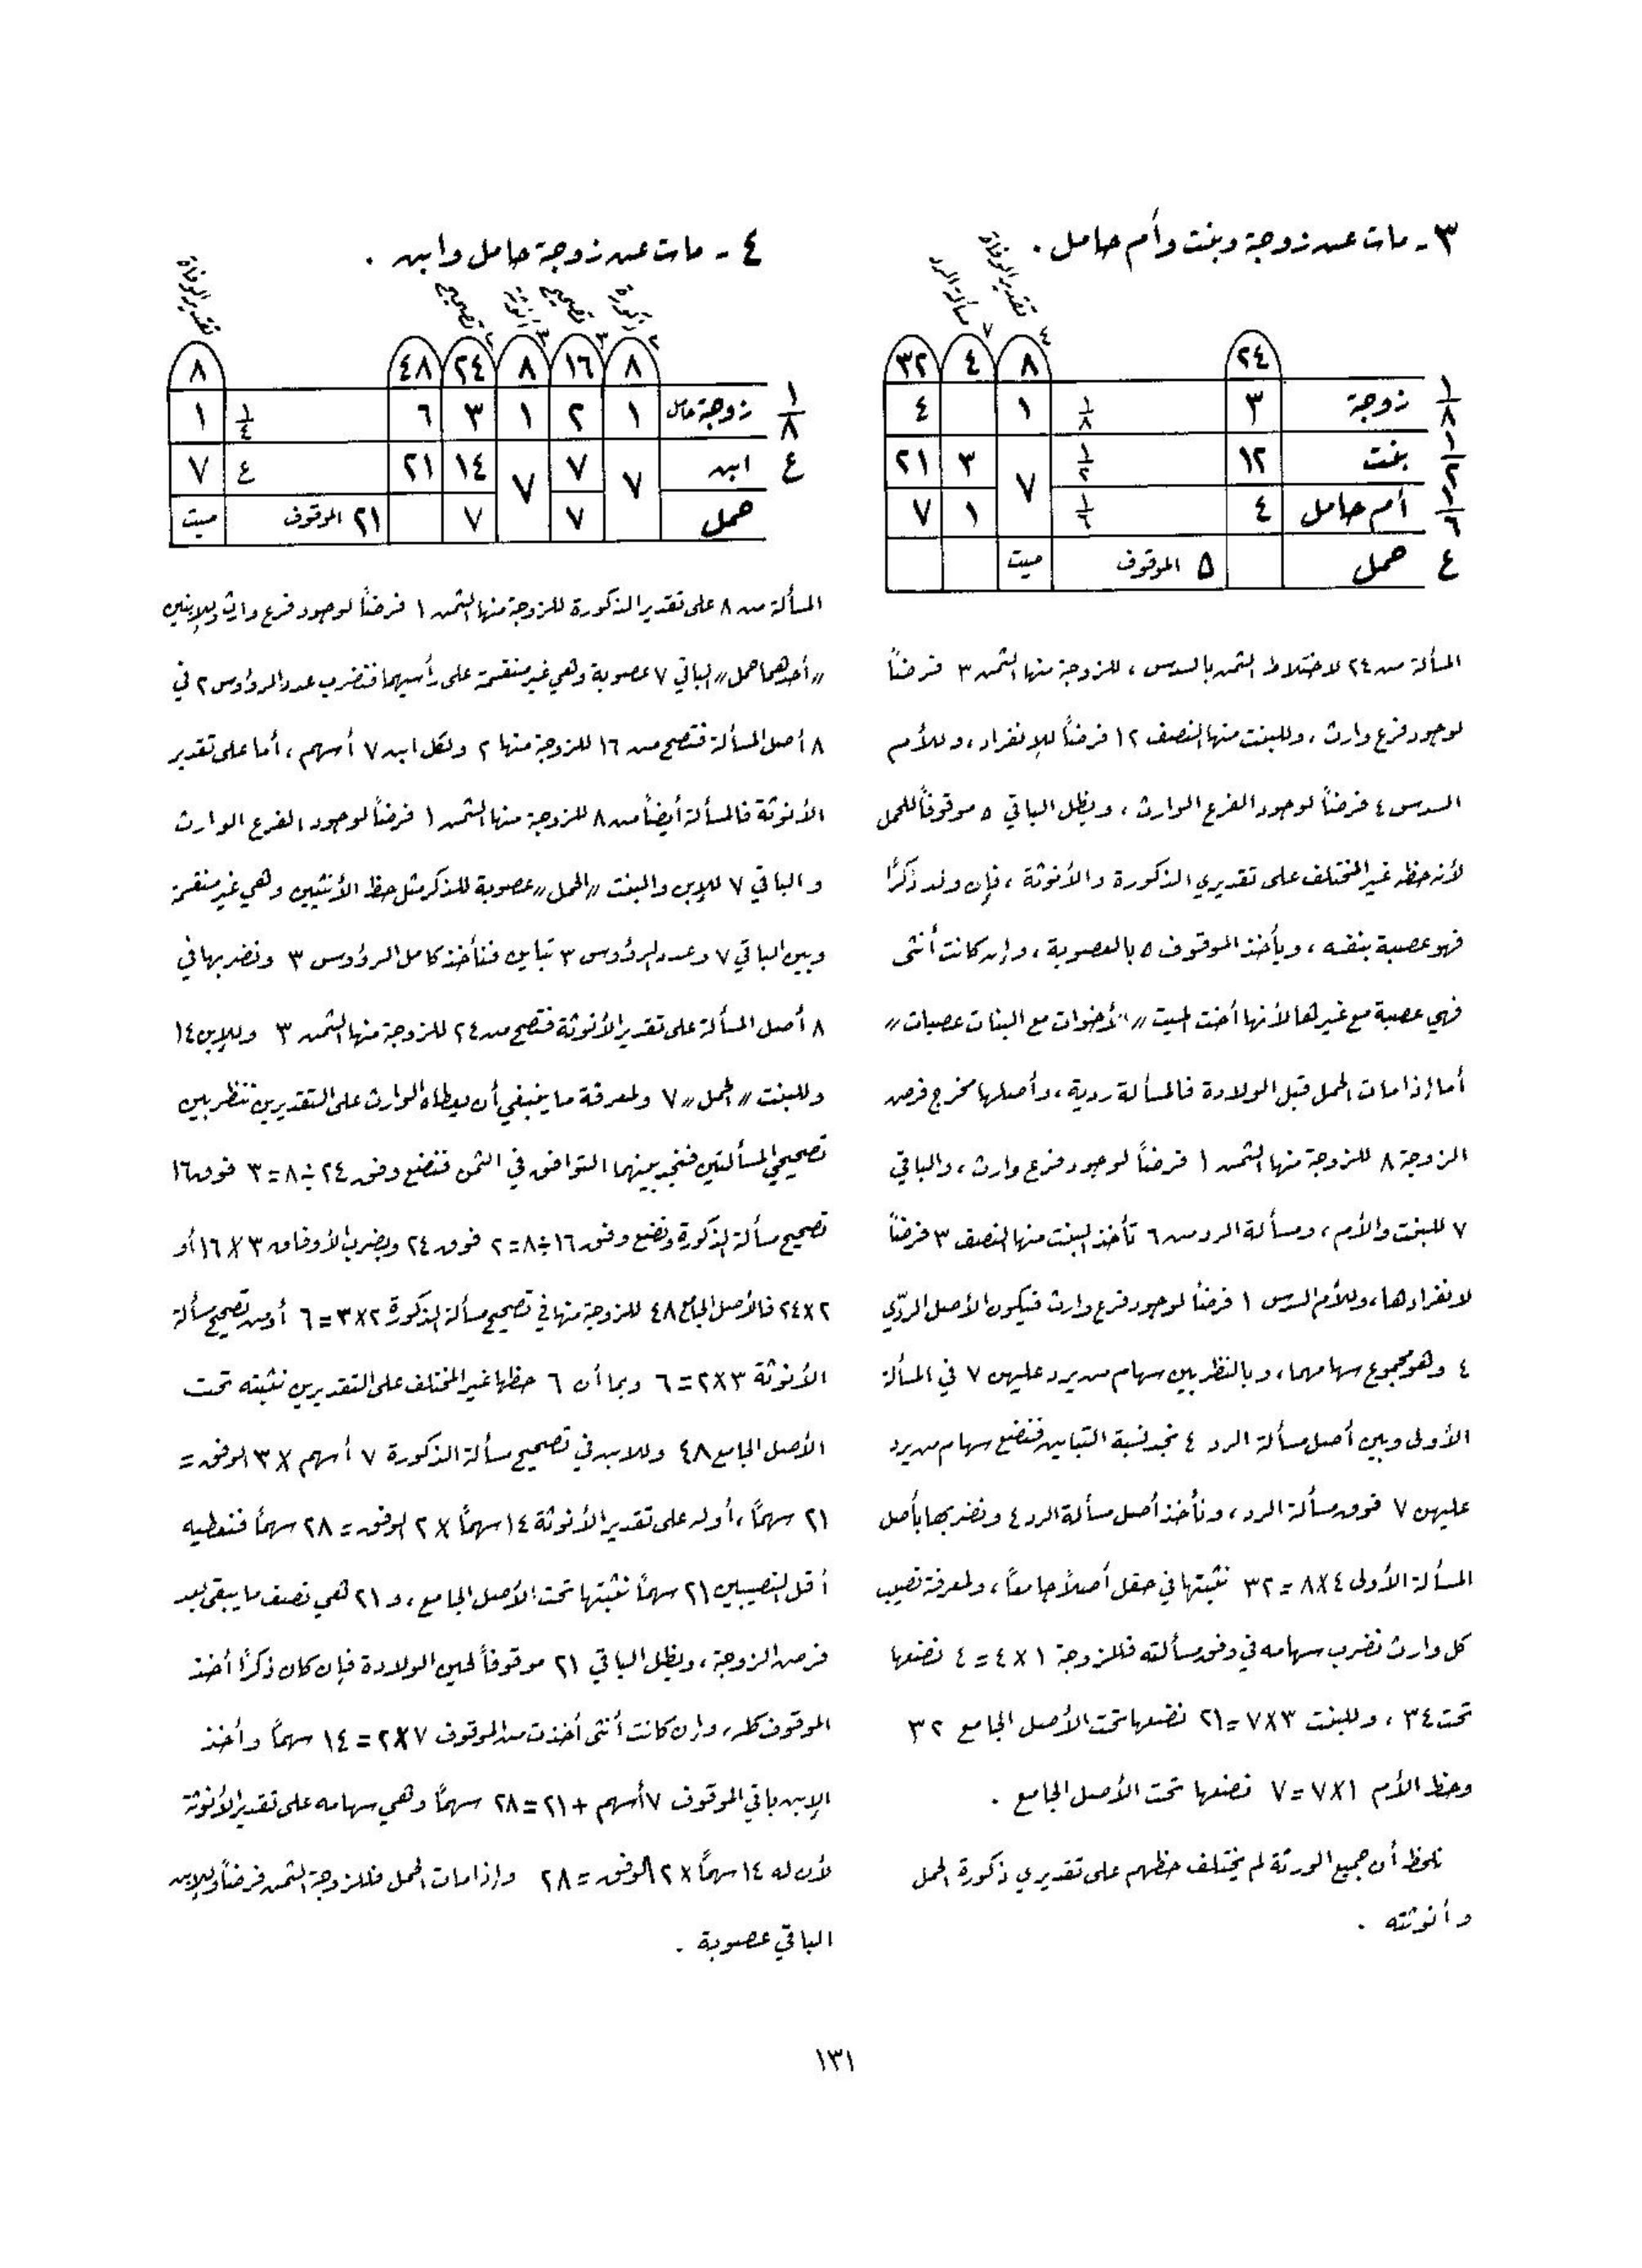 ٣ - مات عن زوجة وبنت وأم حامل .
تقدير الوفاة
مسألة الرد
٤
٧
٢٤ ٨ ٤ ٣٢
١/٨ زوجة ٣ ١/٨ ١ ٤
١/٢ بنت ١٢ ١/٢ ٧ ٣ ٢١
١/٦ أم حامل ٤ ١/٦ ١ ٧
ع حمل ٥ الموقوف ميت
المسألة من ٢٤ لاختلاط الثمن بالسدس ، للزوجة منها الثمن ٣ فرضاً
لوجود فرع وارث ، وللبنت منها النصف ١٢ فرضاً للإنفراد ، وللأم
السدس ٤ فرضاً لوجود الفرع الوارث ، ويظل الباقي ٥ موقوفاً للحمل
لأنه حظه غير المختلف على تقديري الذكورة والأنوثة ، فإن ولد ذكرًا
فهو عصبة بنفسه ، ويأخذ الموقوف ٥ بالعصوبة ، وإن كانت أنثى
فهي عصبة مع غيرها لأنها أخت الميت « الأخوات مع البنات عصبات »
أما إذا مات الحمل قبل الولادة فالمسألة ردية ، وأصلها مخرج فرض
الزوجة ٨ للزوجة منها الثمن ١ فرضاً لوجود فرع وارث ، والباقي
٧ للبنت والأم ، ومسألة الرد من ٦ تأخذ البنت منها النصف ٣ فرضاً
لانفرادها ، وللأم السدس ١ فرضاً لوجود فرع وارث فيكون الأصل الردّي
٤ وهو مجموع سهامهما ، وبالنظر بين سهام من يرد عليهن ٧ في المسألة
الأولى وبين أصل مسألة الرد ٤ نجد نسبة التباين فنضع سهام من يرد
عليهن ٧ فوق مسألة الرد ، ونأخذ أصل مسألة الرد ٤ ونضربها بأصل
المسألة الأولى ٤ × ٨ = ٣٢ نثبتها في حقل أصلاً جامعاً ، ولمعرفة نصيب
كل وارث نضرب سهامه في وفق مسألته فللزوجة ١ × ٤ = ٤ نضعها
تحت ٣٤ ، وللبنت ٣ × ٧ = ٢١ نضعها تحت الأصل الجامع ٣٢
وحظ الأم ١ × ٧ = ٧ نضعها تحت الأصل الجامع .
نلحظ أن جميع الورثة لم يختلف حظهم على تقديري ذكورة الحمل
وأنوثته .
٤ - مات عن زوجة حامل وابن .
ذكورة تصحيح أنوثة تصحيح تقدير الوفاة
٢ ٣ ٣ ٢
٨ ١٦ ٨ ٢٤ ٤٨ ٨
١/٨ زوجة حامل ١ ٢ ١ ٣ ٦ ١/٤ ١
ع ابن ٧ ٧ ٧ ١٤ ٢١ ع ٧
حمل ٧ ٧ ٢١ الموقوف ميت
المسألة من ٨ على تقدير الذكورة للزوجة منها الثمن ١ فرضاً لوجود فرع وارث وللإبنين
« أحدهما حمل » الباقي ٧ عصوبة وهي غير منقسمة على رأسيهما فتضرب عدد الرؤوس ٢ في
٨ أصل المسألة فتصح من ١٦ للزوجة منها ٢ ولكل ابن ٧ أسهم ، أما على تقدير
الأنوثة فالمسألة أيضاً من ٨ للزوجة منها الثمن ١ فرضاً لوجود الفرع الوارث
والباقي ٧ للإبن والبنت « الحمل » عصوبة للذكر مثل حظ الأنثيين وهي غير منقسمة
وبين الباقي ٧ وعدد الرؤوس ٣ تباين فنأخذ كامل الرؤوس ٣ ونضربها في
٨ أصل المسألة على تقدير الأنوثة فتصح من ٢٤ للزوجة منها الثمن ٣ وللإبن ١٤
وللبنت « الحمل » ٧ ولمعرفة ما ينبغي أن يعطاه الوارث على التقديرين ننظر بين
تصحيحي المسألتين فنجد بينهما التوافق في الثمن فنضع وفق ٢٤ ÷ ٨ = ٣ فوق ١٦
تصحيح مسألة الذكورة ونضع وفق ١٦ ÷ ٨ = ٢ فوق ٢٤ وبضرب الأوفاق ٣ × ١٦ أو
٢ × ٢٤ فالأصل الجامع ٤٨ للزوجة منها في تصحيح مسألة الذكورة ٢ × ٣ = ٦ أو من تصحيح مسألة
الأنوثة ٣ × ٢ = ٦ وبما أن ٦ حظها غير المختلف على التقديرين نثبته تحت
الأصل الجامع ٤٨ وللابن في تصحيح مسألة الذكورة ٧ أسهم × ٣ الوفق =
٢١ سهماً ، أو له على تقدير الأنوثة ١٤ سهماً × ٢ الوفق = ٢٨ سهماً فنعطيه
أقل النصيبين ٢١ سهماً نثبتها تحت الأصل الجامع ، و ٢١ هي نصف ما يبقى بعد
فرض الزوجة ، ويظل الباقي ٢١ موقوفاً لحين الولادة فإن كان ذكرًا أخذ
الموقوف كله ، وإن كانت أنثى أخذت من الموقوف ٧ × ٢ = ١٤ سهماً وأخذ
الإبن باقي الموقوف ٧ أسهم + ٢١ = ٢٨ سهماً وهي سهامه على تقدير الأنوثة
لأن له ١٤ سهماً × ٢ الوفق = ٢٨ وإذا مات الحمل فللزوجة الثمن فرضاً وللإبن
الباقي عصوبة .
١٣١